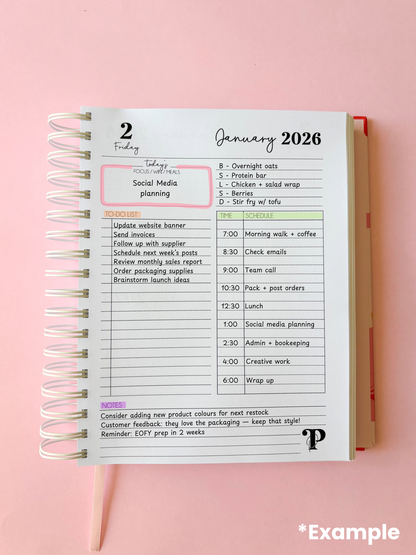 2
Friday
January 2026
today's
FOCUS / WIN / MEALS
Social Media
planning
B - Overnight oats
S - Protein bar
L - Chicken + salad wrap
S - Berries
D - Stir fry w/ tofu
TO-DO LIST
Update website banner
Send invoices
Follow up with supplier
Schedule next week's posts
Review monthly sales report
Order packaging supplies
Brainstorm launch ideas
TIME SCHEDULE
7:00 Morning walk + coffee
8:30 Check emails
9:00 Team call
10:30 Pack + post orders
12:30 Lunch
1:00 Social media planning
2:30 Admin + bookeeping
4:00 Creative work
6:00 Wrap up
NOTES
Consider adding new product colours for next restock
Customer feedback: they love the packaging — keep that style!
Reminder: EOFY prep in 2 weeks
*Example